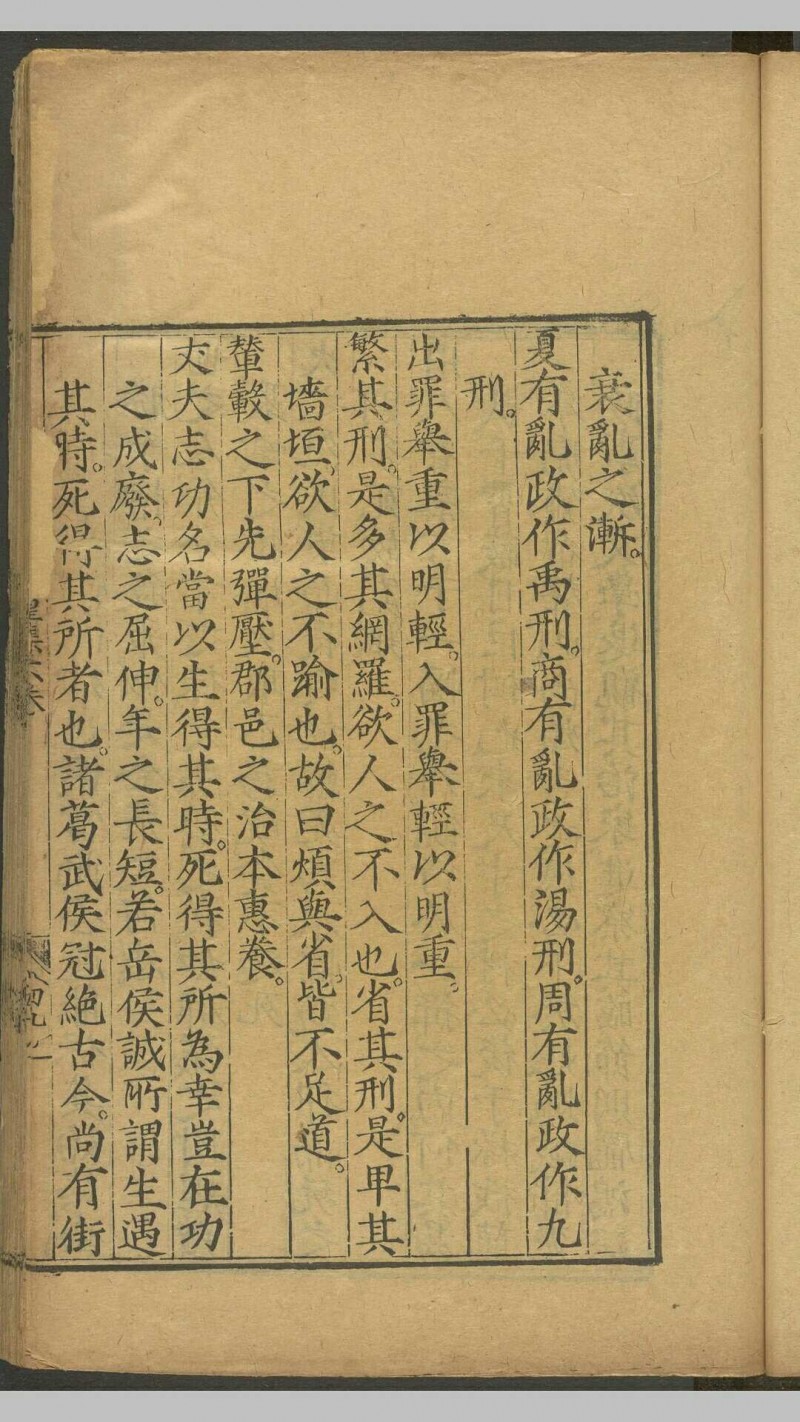 衰亂之漸。
夏有亂政作禹刑。商有亂政作湯刑。周有亂政作九
刑。
出罪舉重以明輕。入罪舉輕以明重。
繁其刑。是多其網羅。欲人之不入也。省其刑。是卑其
墻垣。欲人之不踰也。故曰煩與省。皆不足道。
輦轂之下先彈壓。郡邑之治本惠養。
丈夫志功名當以生得其時。死得其所為幸豈在功
之成廢。志之屈伸。年之長短。若岳侯誠所謂生遇
其時。死得其所者也。諸葛武侯冠絕古今。尚有街